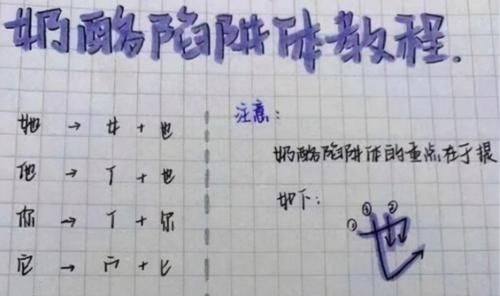 奶酪陷阱体教程.
她 → 女 + 也
他 → 亻 + 也
你 → 亻 + 尔
它 → 宀 + 匕
注意:
奶酪陷阱体的重点在于提
如下:
③ ① ②
也